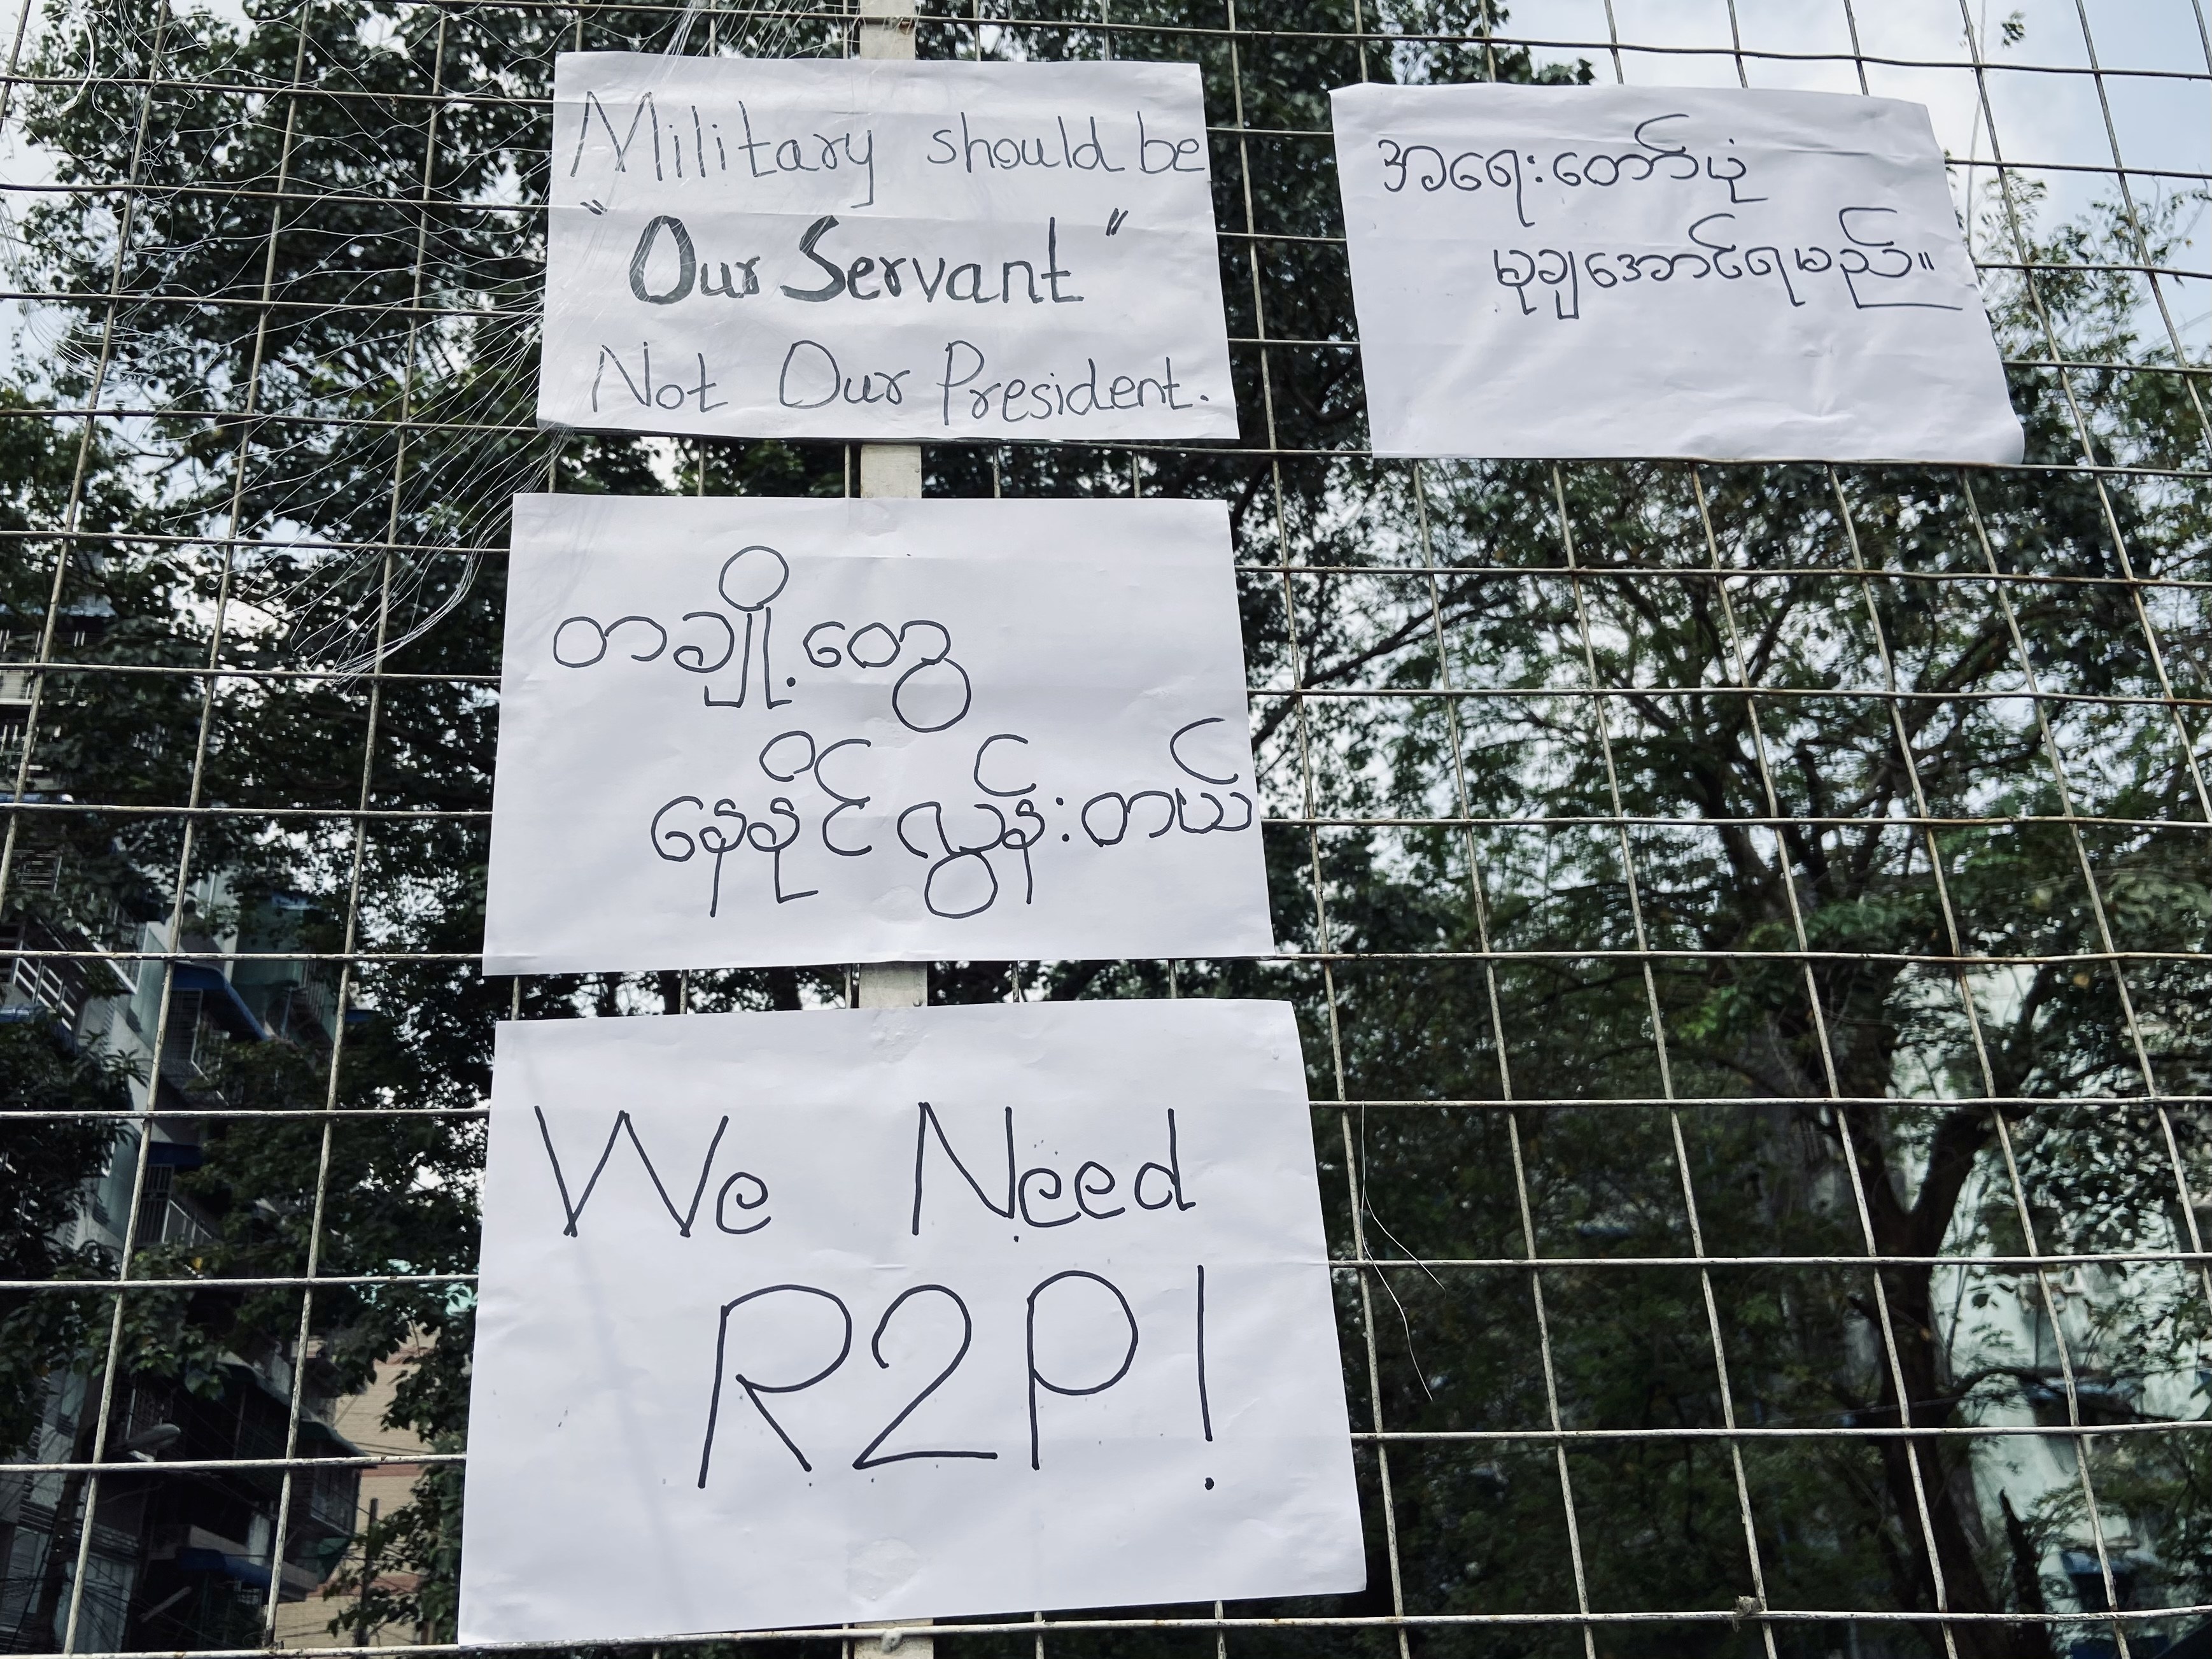 Military should be
"Our Servant"
Not Our President.
အရေးတော်ပုံ
မုချအောင်ရမည်။
တချို့တွေ
နေနိုင်လွန်းတယ်
We Need
R2P!